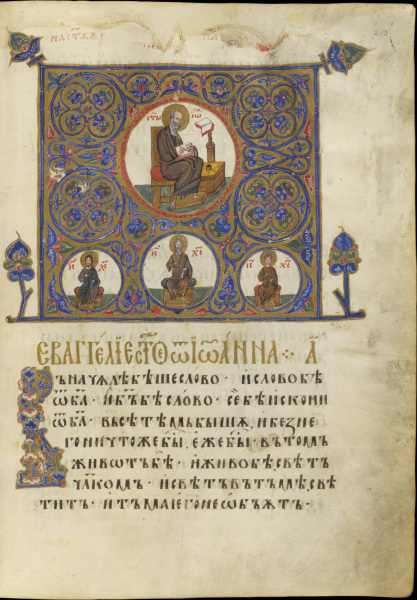 ІС ХС
ІС ХС
ІС ХС
ЕВАГГЕЛІЕ СТО Ѿ ІѠАННА ·:· А
ВЪ НАЧѦЛѢ БѢШЕ СЛОВО · И СЛОВО БѢ
Ѿ БА҃ · И БЪ҃ БѢ СЛОВО · СЕ БѢ ИСКОНИ
Ѿ БА҃ · ВЬСѢ ТѢМЬ БЫШѦ · И БЕЗ НЕ
ГО НИЧТОЖЕ БЫ҇, ЕЖЕ БЫ҇ · ВЪ ТОМЪ
ЖИВѠТЬ БѢ · И ЖИВО БѢ СВѢТЪ
ЧЛ҃КОМЪ · И СВѢТЪ ВЪ ТЪМѢ СВѢ
ТИТЪ · И ТЪМА ІЕГО НЕ ѠБЪѦТЪ ·